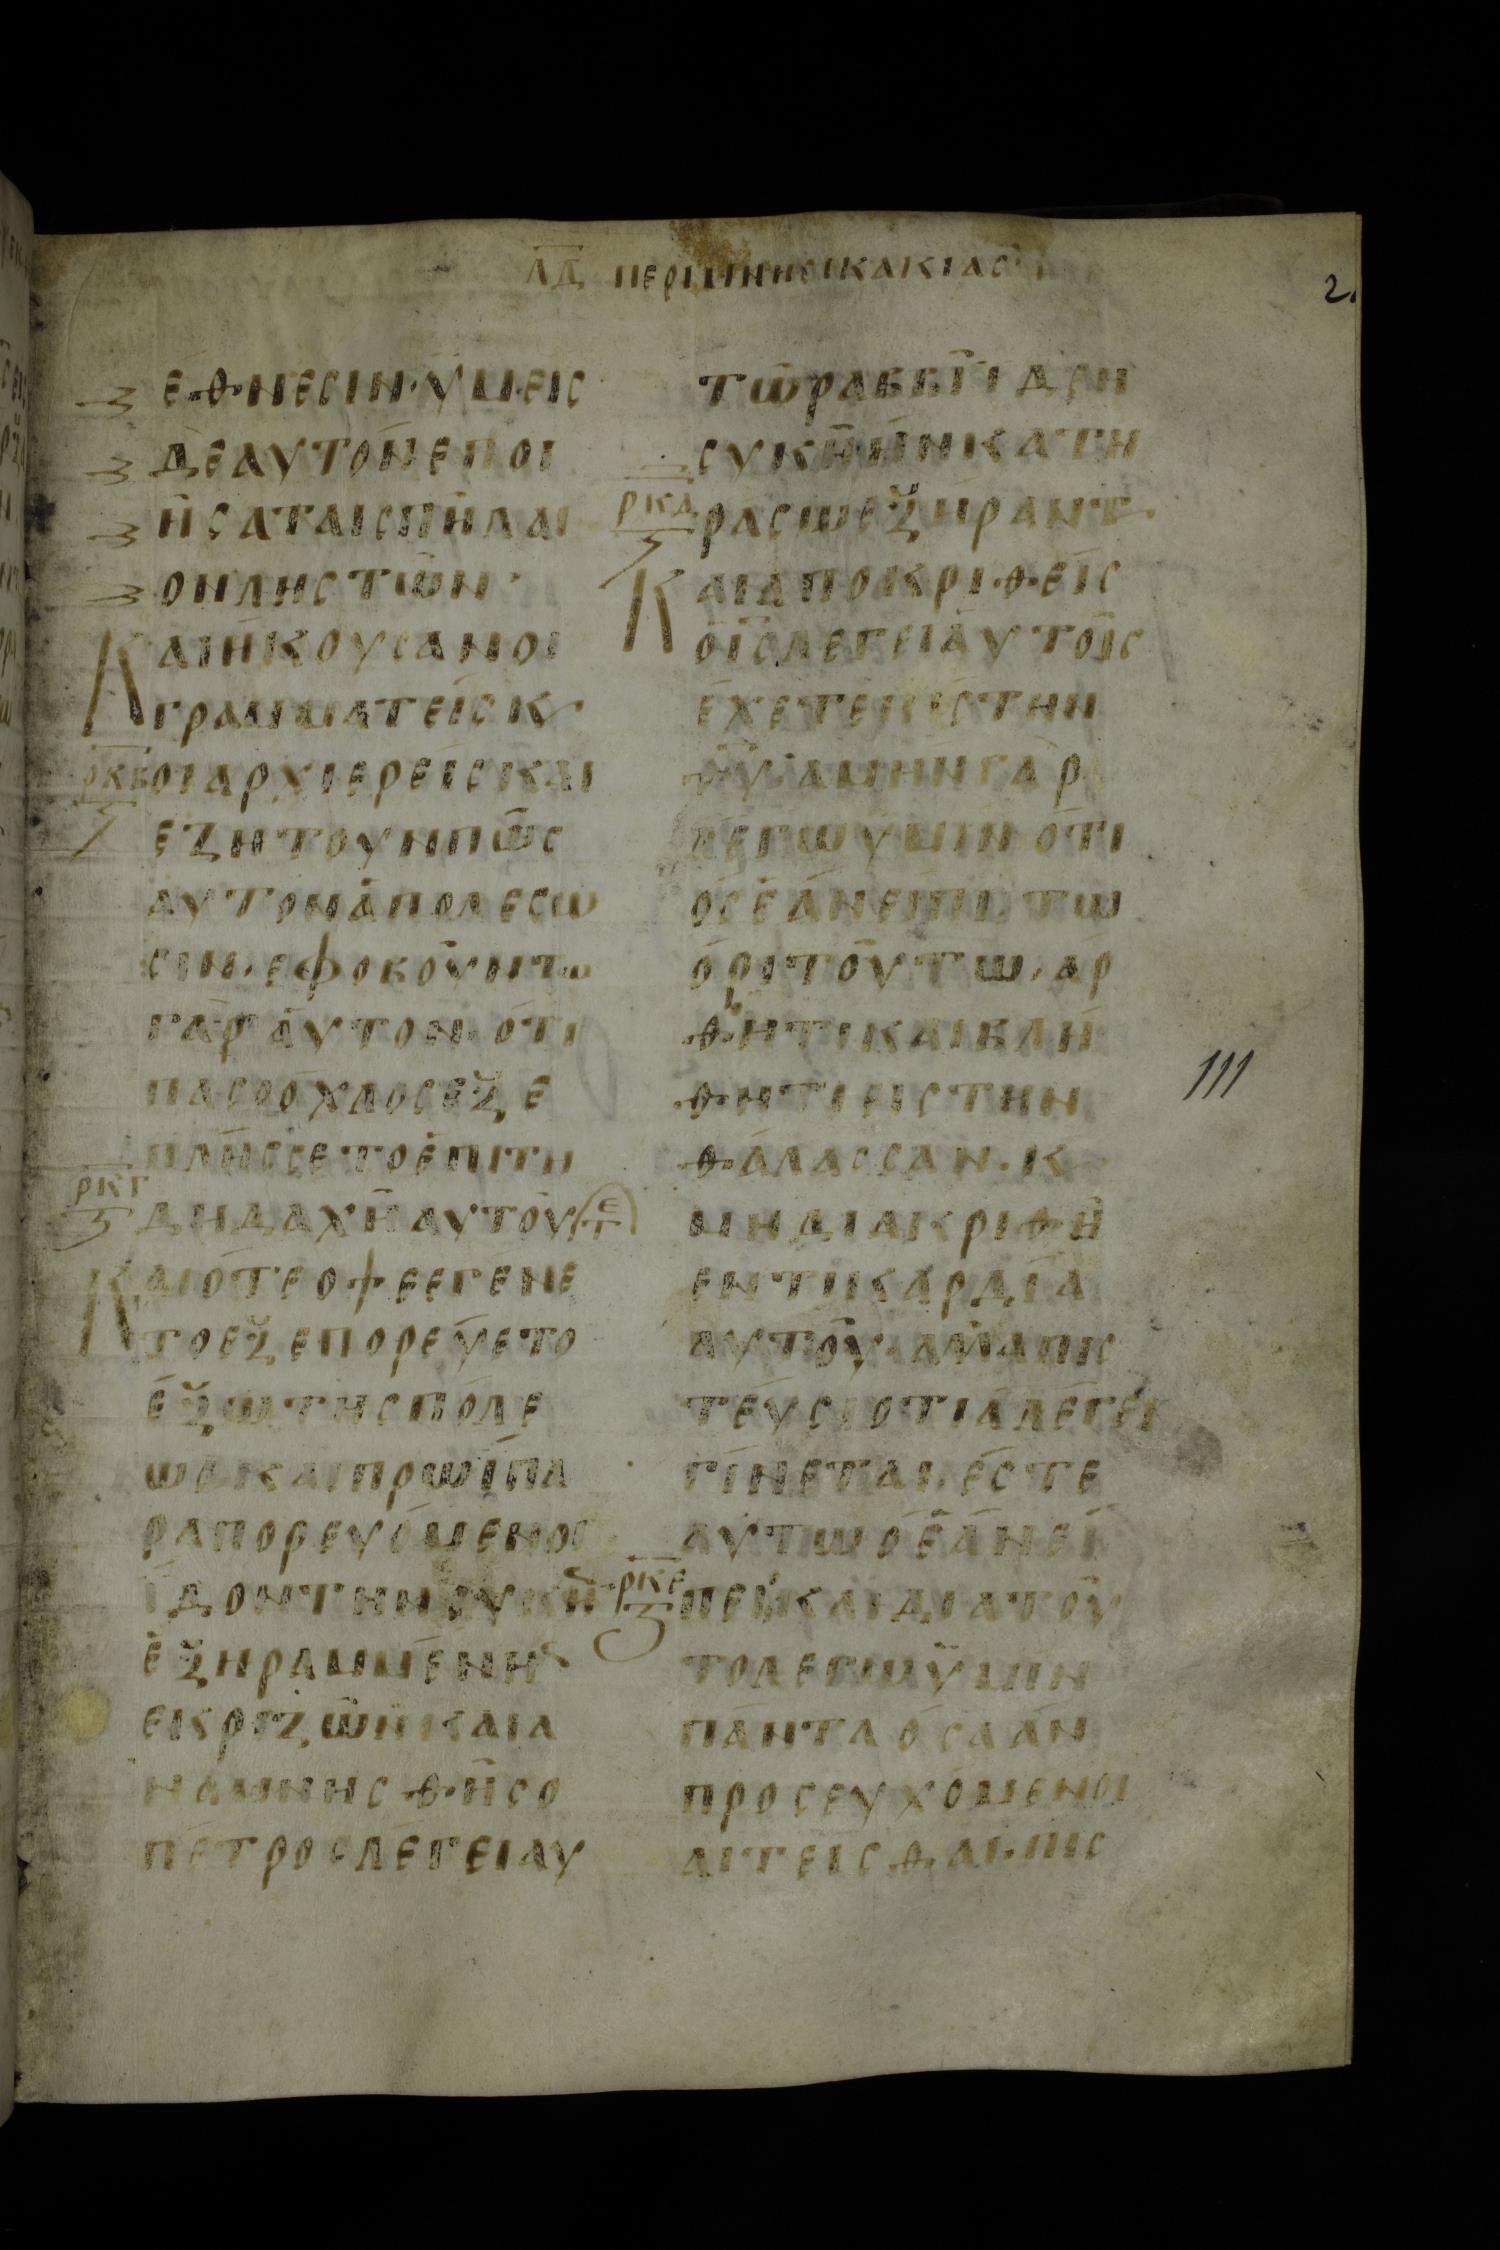 ΛΔ ΠΕΡΙ ΜΝΗΣΙΚΑΚΙΑΣ
ΕΘΝΕΣΙΝ· ΫΜΕΙΣ
ΔΕ ΑΥΤΟΝ ΕΠΟΙ
ΗΣΑΤΑΙ ΣΠΗΛΑΙ
ΟΝ ΛΗΣΤΩΝ·
ΚΑΙ ΗΚΟΥΣΑΝ ΟΙ
ΓΡΑΜΜΑΤΕΙΣ Κ
ΡΚΒ
ΟΙ ΑΡΧΙΕΡΕΙΣ ΚΑΙ
ΕΖΗΤΟΥΝ ΠΩΣ
ΑΥΤΟΝ ΑΠΟΛΕΣΩ
ΣΙΝ· ΕΦΟΒΟΥΝΤΩ
ΓΑΡ ΑΥΤΟΝ· ΟΤΙ
ΠΑΣ Ο ΟΧΛΟΣ ΕΞΕ
ΠΛΗΣΣΕΤΟ ΕΠΙ ΤΗ
ΡΚΓ
ΔΗΔΑΧΗ ΑΥΤΟΥ
ΚΑΙ ΟΤΕ ΟΨΕ ΕΓΕΝΕ
ΤΟ ΕΞΕΠΟΡΕΥΕΤΟ
ΕΞΩ ΤΗΣ ΠΟΛΕ
ΩΣ ΚΑΙ ΠΡΩΪ ΠΑ
ΡΑΠΟΡΕΥΟΜΕΝΟΙ
ΪΔΟΝ ΤΗΝ ΣΥΚΗ
ΕΞΗΡΑΜΜΕΝΗ
ΕΚ ΡΙΖΩΝ ΚΑΙ Α
ΝΑΜΝΗΣΘΗΣ Ο
ΠΕΤΡΟΣ ΛΕΓΕΙ ΑΥ
ΤΩ ΡΑΒΒΙ ΪΔΕ Η
ΣΥΚΗ ΗΝ ΚΑΤΗ
ΡΚΔ
ΡΑΣΩ ΕΞΗΡΑΝΤ
ΚΑΙ ΑΠΟΚΡΙΘΕΙΣ
Ο ΙΣ ΛΕΓΕΙ ΑΥΤΟΙΣ
ΕΧΕΤΕ ΠΙΣΤΗΝ
ΘΥ· ΑΜΗΝ ΓΑΡ
ΛΕΓΩ ΥΜΙΝ ΟΤΙ
ΟΣ ΕΑΝ ΕΙΠΙ ΤΩ
ΟΡΙ ΤΟΥΤΩ· ΑΡ
ΘΗΤΙ ΚΑΙ ΒΛΗ
ΘΗΤΙ ΕΙΣ ΤΗΝ
ΘΑΛΑΣΣΑΝ· Κ
ΜΗ ΔΙΑΚΡΙΘΗ
ΕΝ ΤΙ ΚΑΡΔΙΑ
ΑΥΤΟΥ· ΑΛΛΑ ΠΙΣ
ΤΕΥΣΙ ΟΤΙ Α ΛΕΓΕΙ
ΓΙΝΕΤΑΙ· ΕΣΤΕ
ΑΥΤΩ Ο ΕΑΝ ΕΙ
ΡΚΕ
ΠΕΙ ΚΑΙ ΔΙΑ ΤΟΥ
ΤΟ ΛΕΓΩ ΫΜΙΝ
ΠΑΝΤΑ ΟΣΑ ΑΝ
ΠΡΟΣΕΥΧΟΜΕΝΟΙ
ΑΙΤΕΙΣΘΑΙ· ΠΙΣ
111